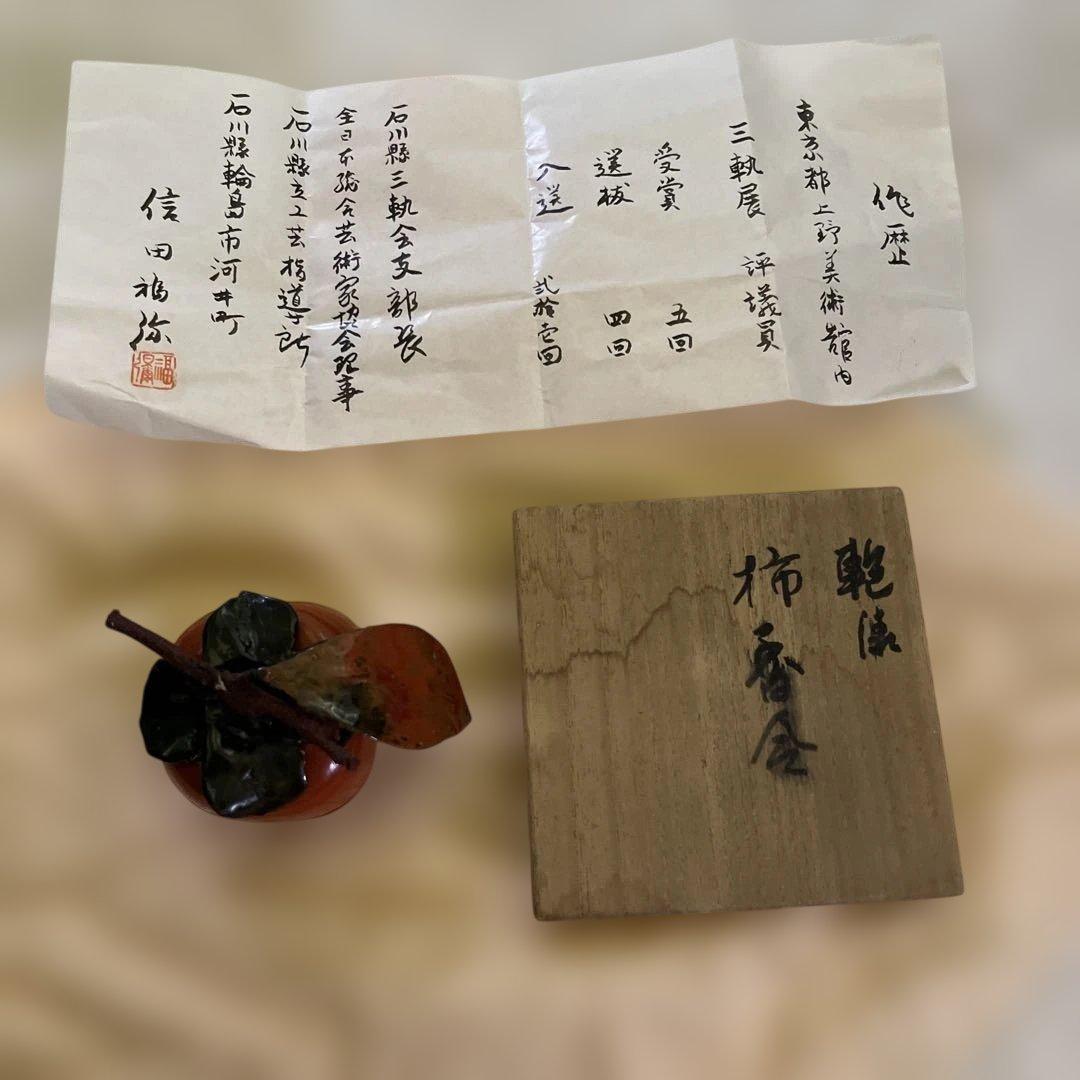 作歴
東京都上野美術館内
三軌展 評議員
受賞 五回
選抜 四回
入選 弐拾壱回
石川縣三軌会支部長
全日本総合芸術家協会理事
石川縣立工芸指導所
石川縣輪島市河井町
信田福弥
乾漆
柿香合